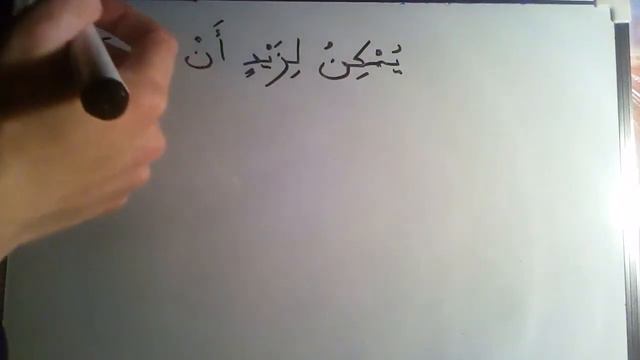 يُمْكِنُ لِزَيْدٍ أَنْ